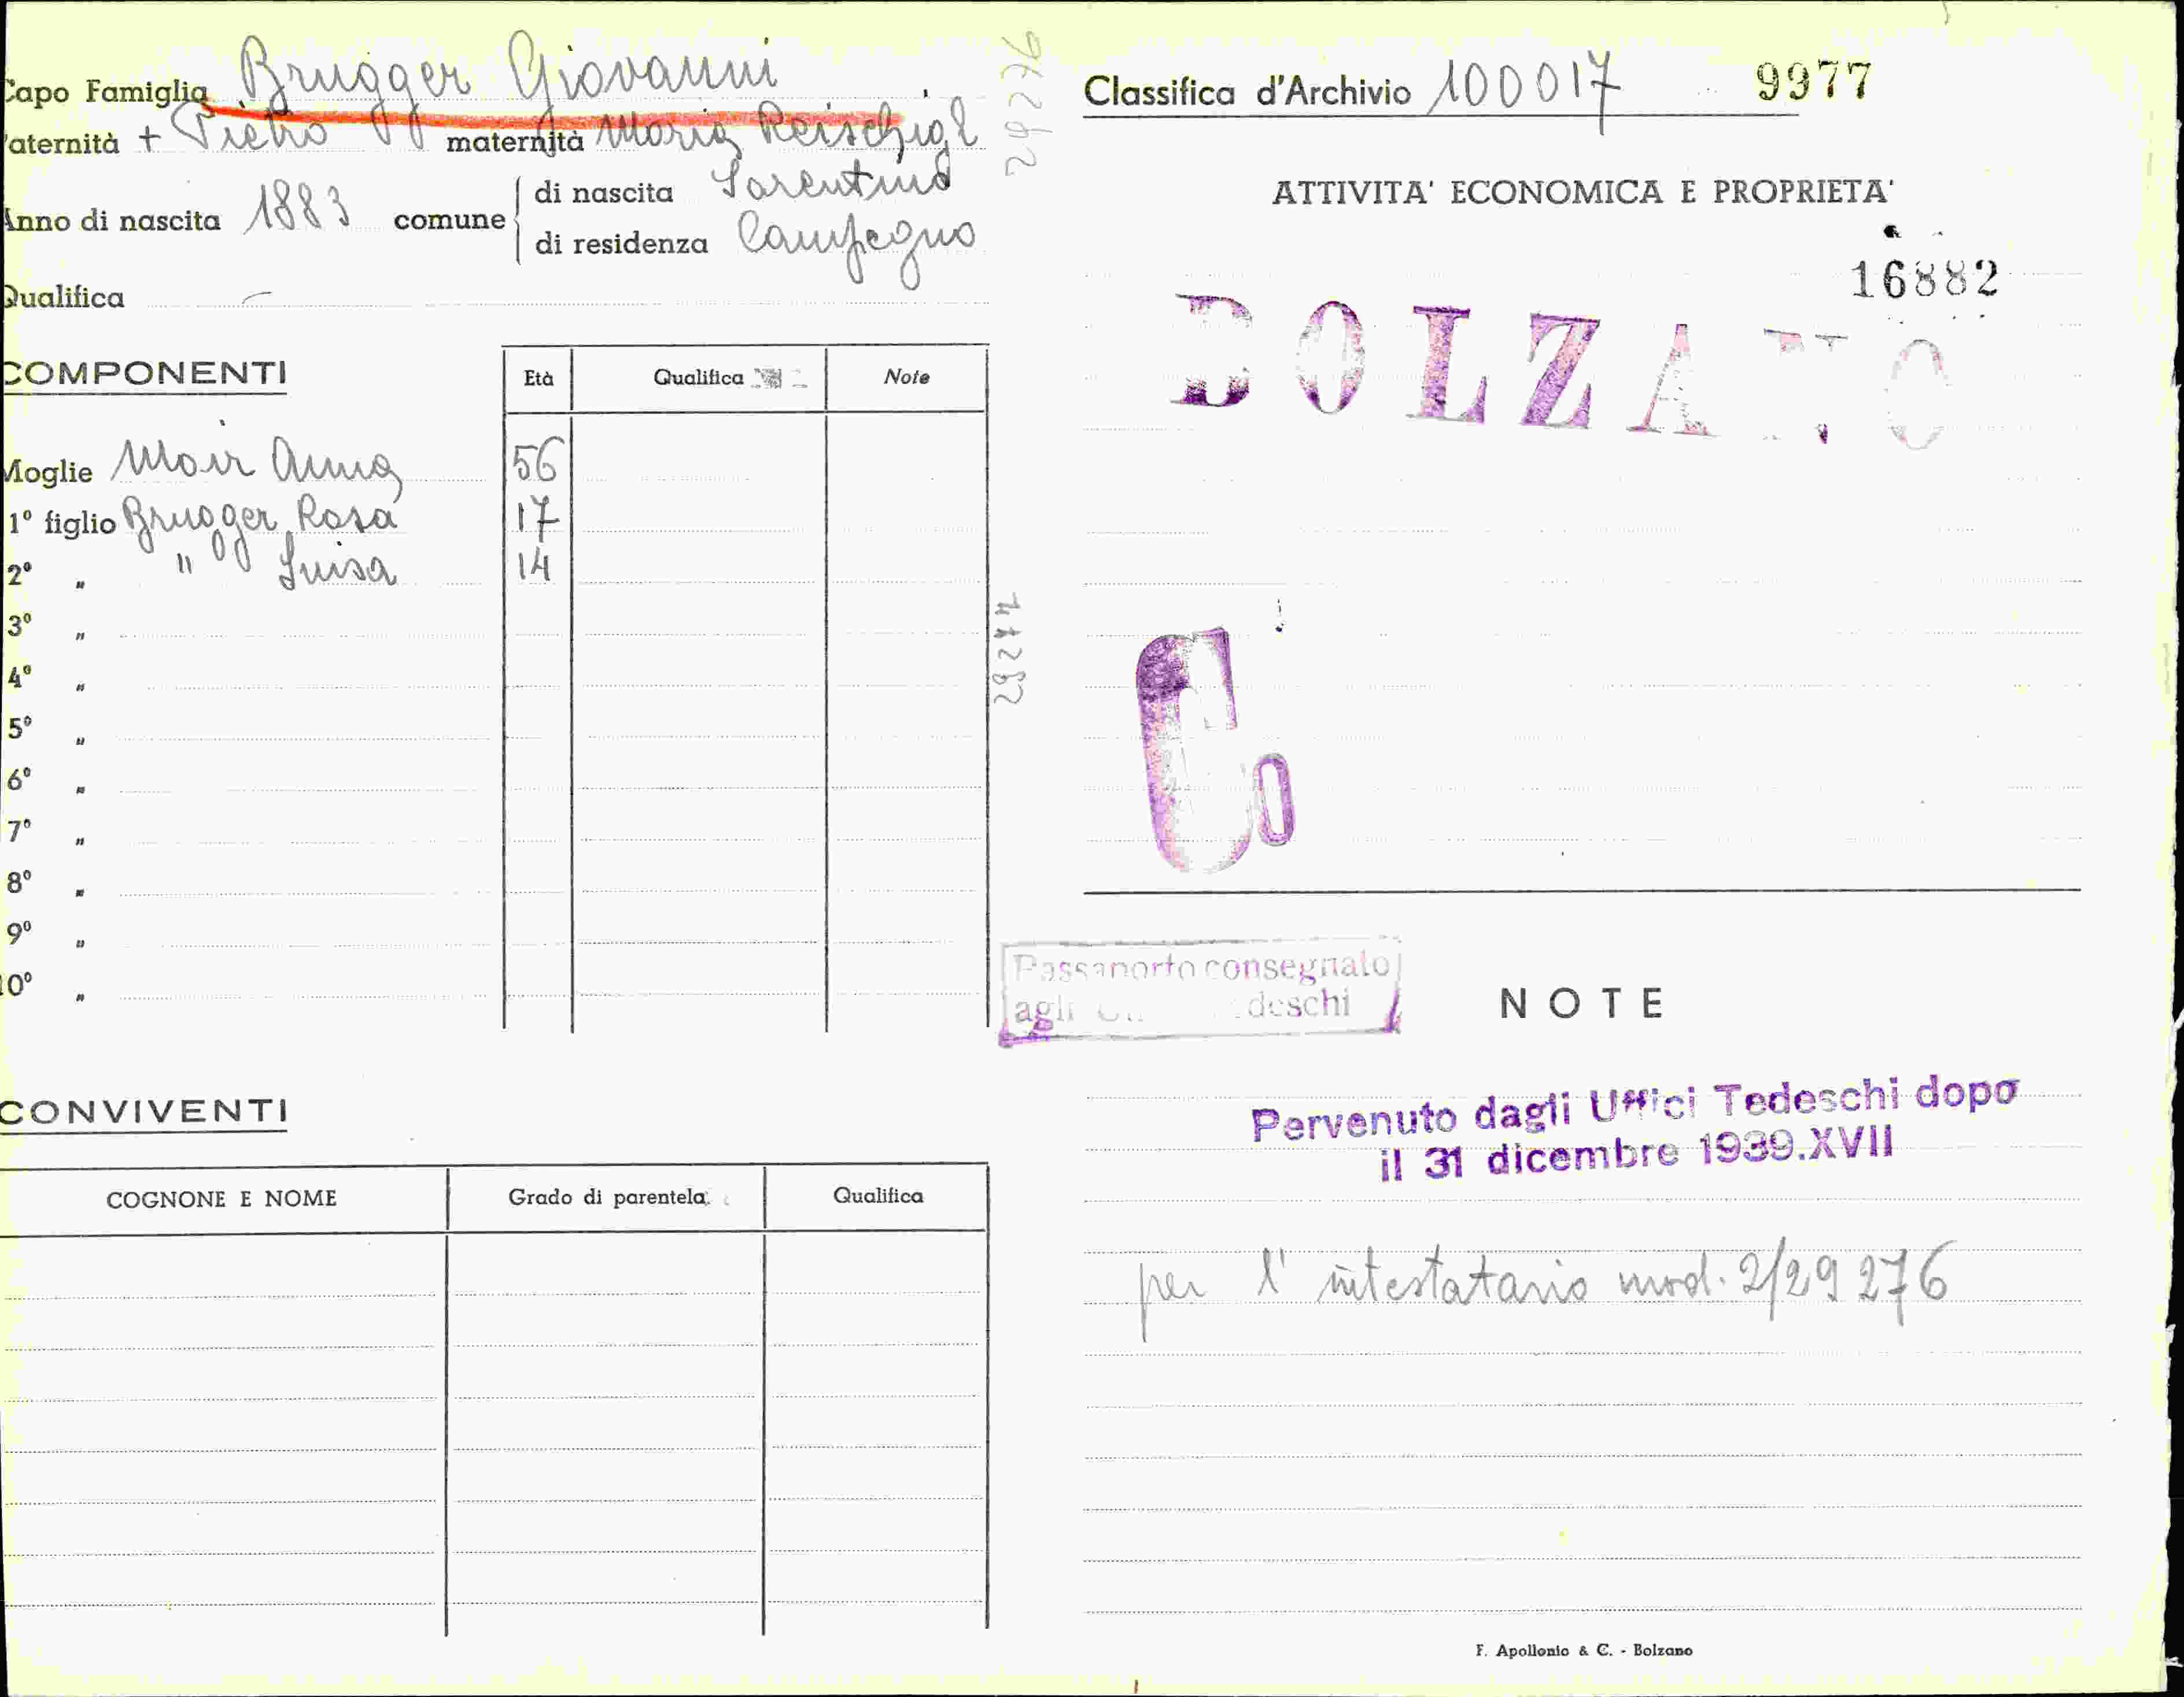 Capo Famiglia Brugger Giovanni
Paternità + Pietro maternità Maria Reischigl
Anno di nascita 1883 comune di nascita Sarentino
di residenza Campegno
Qualifica –
29276
COMPONENTI Età Qualifica Note
Moglie Moir Anna 56
1° figlio Brugger Rosa 17
2° " " Luisa 14
3° "
4° "
5° "
6° "
7° "
8° "
9° "
10° "
29274
CONVIVENTI
COGNONE E NOME Grado di parentela Qualifica
Classifica d'Archivio 100017 9977
ATTIVITA' ECONOMICA E PROPRIETA'
16882
BOLZANO
Co
Passaporto consegnato
agli deschi
NOTE
Pervenuto dagli Uffici Tedeschi dopo
il 31 dicembre 1939.XVII
per l'intestatario mod. 2/29276
F. Apollonio & C. - Bolzano